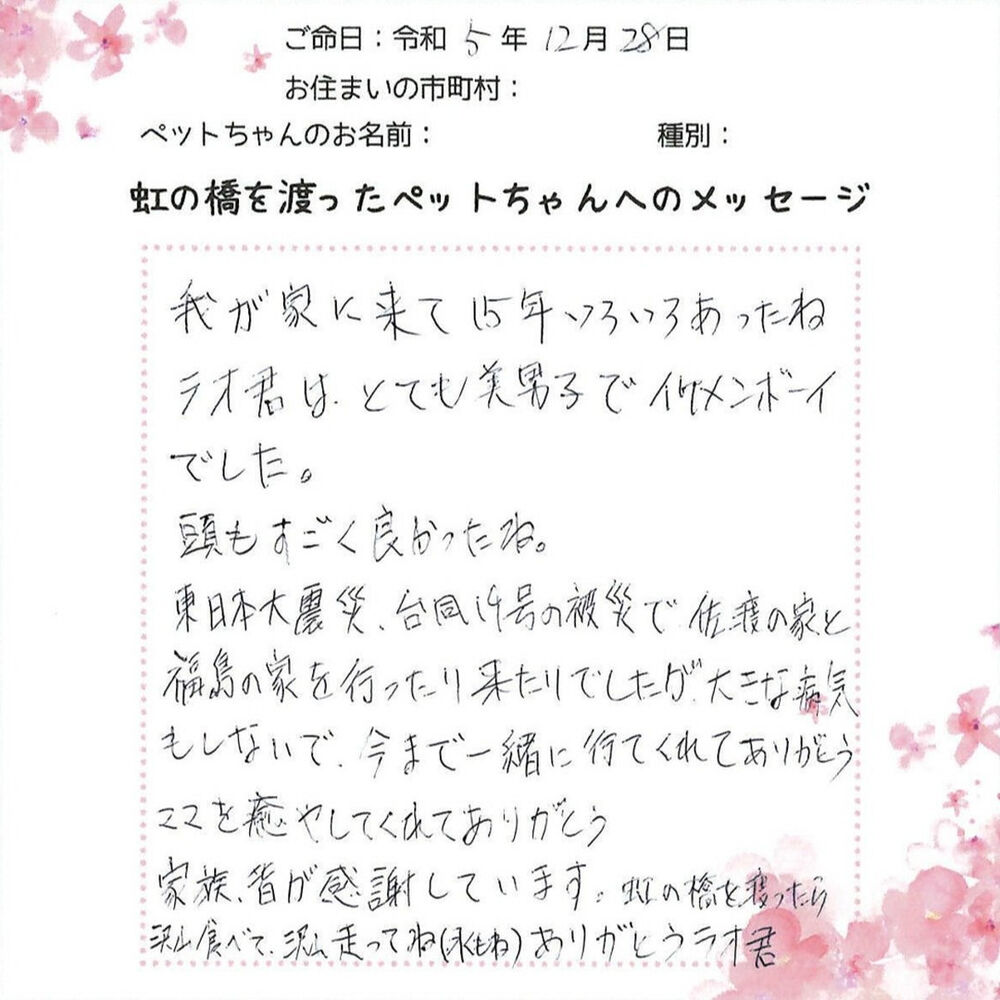 ご命日：令和 5 年 12月 28日
お住まいの市町村：
ペットちゃんのお名前： 種別：
虹の橋を渡ったペットちゃんへのメッセージ
我が家に来て15年いろいろあったね
ラオ君は、とても美男子でイケメンボーイ
でした。
頭もすごく良かったね。
東日本大震災、台風19号の被災で、佐渡の家と
福島の家を行ったり来たりでしたが、大きな病気
もしないで、今まで一緒に行てくれてありがとう
ママを癒やしてくれてありがとう
家族、皆が感謝しています。虹の橋を渡ったら
沢山食べて、沢山走ってね(水もね)ありがとうラオ君